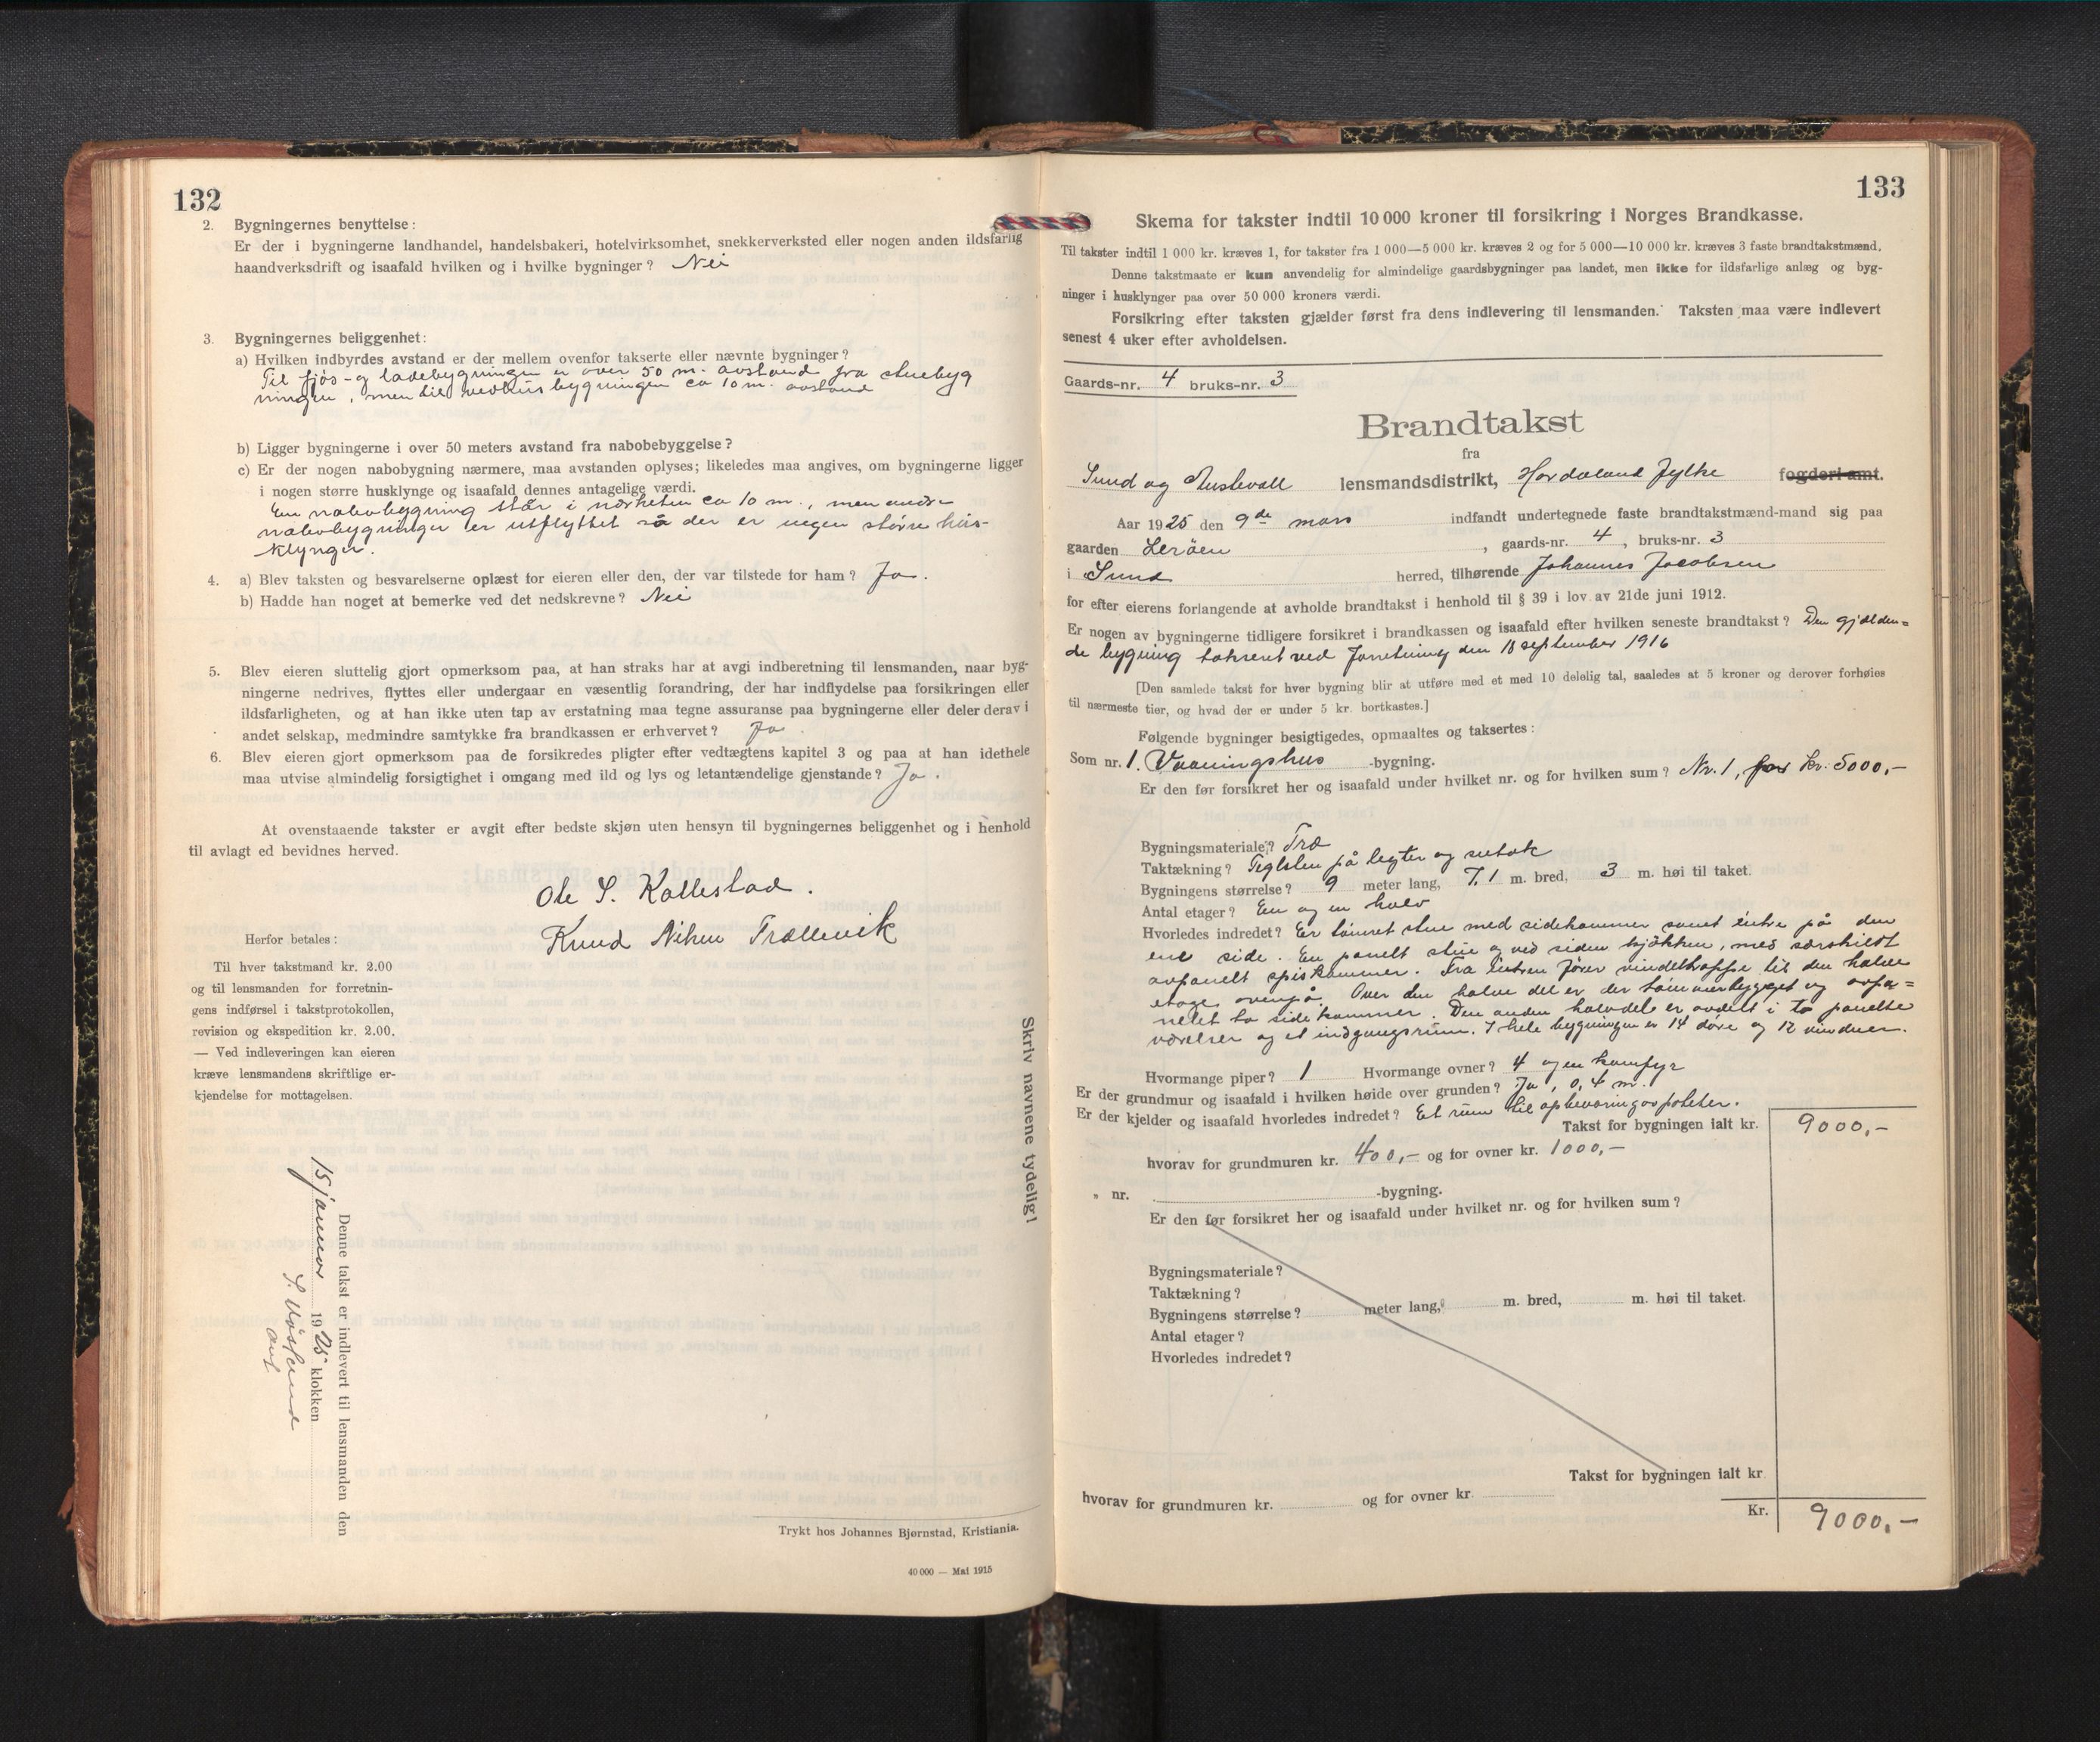 132
2. Bygningernes benyttelse:
Er der i bygningerne landhandel, handelsbakeri, hotelvirksomhet, snekkerverksted eller nogen anden ildsfarlig
haandverksdrift og isaafald hvilken og i hvilke bygninger? Nei
3. Bygningernes beliggenhet:
a) Hvilken indbyrdes avstand er der mellem ovenfor takserte eller nævnte bygninger?
Til fjös- og ladebygningen er over 50 m. avstand fra stuebyg
ningen, men til vedhusbygningen ca 10 m. avstand
b) Ligger bygningerne i over 50 meters avstand fra nabobebyggelse?
c) Er der nogen nabobygning nærmere, maa avstanden oplyses; likeledes maa angives, om bygningerne ligger
i nogen større husklynge og isaafald dennes antagelige værdi.
En nabobygning står i nærheten ca 10 m., men andre
nabobygninger er utflyttet så der er ingen större hus-
klynger.
4. a) Blev taksten og besvarelserne oplæst for eieren eller den, der var tilstede for ham? Ja.
b) Hadde han noget at bemerke ved det nedskrevne? Nei
5. Blev eieren sluttelig gjort opmerksom paa, at han straks har at avgi indberetning til lensmanden, naar byg-
ningerne nedrives, flyttes eller undergaar en væsentlig forandring, der har indflydelse paa forsikringen eller
ildsfarligheten, og at han ikke uten tap av erstatning maa tegne assuranse paa bygningerne eller deler derav i
andet selskap, medmindre samtykke fra brandkassen er erhvervet? Ja
6. Blev eieren gjort opmerksom paa de forsikredes pligter efter vedtægtens kapitel 3 og paa at han idethele
maa utvise almindelig forsigtighet i omgang med ild og lys og letantændelige gjenstande? Ja.
At ovenstaaende takster er avgit efter bedste skjøn uten hensyn til bygningernes beliggenhet og i henhold
til avlagt ed bevidnes herved.
Ole S. Kallestad.
Knud Nilsen Trællevik
Herfor betales:
Til hver takstmand kr. 2.00
og til lensmanden for forretnin-
gens indførsel i takstprotokollen,
revision og ekspedition kr. 2.00.
— Ved indleveringen kan eieren
kræve lensmandens skriftlige er-
kjendelse for mottagelsen.
Skriv navnene tydelig!
Denne takst er indlevert til lensmanden den
15 januar 1925 klokken
Trykt hos Johannes Bjørnstad, Kristiania.
40 000 — Mai 1915
133
Skema for takster indtil 10 000 kroner til forsikring i Norges Brandkasse.
Til takster indtil 1 000 kr. kræves 1, for takster fra 1 000—5 000 kr. kræves 2 og for 5 000—10 000 kr. kræves 3 faste brandtakstmænd.
Denne takstmaate er kun anvendelig for almindelige gaardsbygninger paa landet, men ikke for ildsfarlige anlæg og byg-
ninger i husklynger paa over 50 000 kroners værdi.
Forsikring efter taksten gjælder først fra dens indlevering til lensmanden. Taksten maa være indlevert
senest 4 uker efter avholdelsen.
Gaards-nr. 4 bruks-nr. 3
Brandtakst
fra
Sund og Austevoll lensmandsdistrikt, Hordaland Fylke fogderi amt.
Aar 1925 den 9de mars indfandt undertegnede faste brandtakstmænd-mand sig paa
gaarden Leröen, gaards-nr. 4, bruks-nr. 3
i Sund herred, tilhørende Johannes Jacobsen
for efter eierens forlangende at avholde brandtakst i henhold til § 39 i lov av 21de juni 1912.
Er nogen av bygningerne tidligere forsikret i brandkassen og isaafald efter hvilken seneste brandtakst? Den gjælden=
de bygning takseret ved forretning den 18 september 1916
[Den samlede takst for hver bygning blir at utføre med et med 10 delelig tal, saaledes at 5 kroner og derover forhøies
til nærmeste tier, og hvad der er under 5 kr. bortkastes.]
Følgende bygninger besigtigedes, opmaaltes og taksertes:
Som nr. 1. Vaaningshus -bygning.
Er den før forsikret her og isaafald under hvilket nr. og for hvilken sum? Nr. 1, for kr. 5000,-
Bygningsmateriale? Træ
Taktækning? Teglsten på legter og sutak
Bygningens størrelse? 9 meter lang, 7.1 m. bred, 3 m. høi til taket.
Antal etager? En og en halv
Hvorledes indredet? Er tömret stue med sidekammer samt entre på den
ene side. En panelt stue og ved siden kjökken, med særskildt
avpanelt spiskammer. Fra entren förer vindeltrappe til den halve
etage ovenpå. Over den halve del er der tömmerbygget og avpa=
nelet to sidekammer. Den anden halvdel er avdelt i to panelte
værelser og et indgangsrum. I hele bygningen er 14 döre og 12 vinduer.
Hvormange piper? 1 Hvormange ovner? 4 og en komfyr
Er der grundmur og isaafald i hvilken høide over grunden? Ja, 0,4 m.
Er der kjelder og isaafald hvorledes indredet? Et rum til opbevaring av poteter.
Takst for bygningen ialt kr. 9000,-
hvorav for grundmuren kr. 400,- og for ovner kr. 1000,-
„ nr. -bygning.
Er den før forsikret her og isaafald under hvilket nr. og for hvilken sum?
Bygningsmateriale?
Taktækning?
Bygningens størrelse? meter lang, m. bred, m. høi til taket.
Antal etager?
Hvorledes indredet?
Takst for bygningen ialt kr.
hvorav for grundmuren kr. og for ovner kr.
Kr. 9000,-